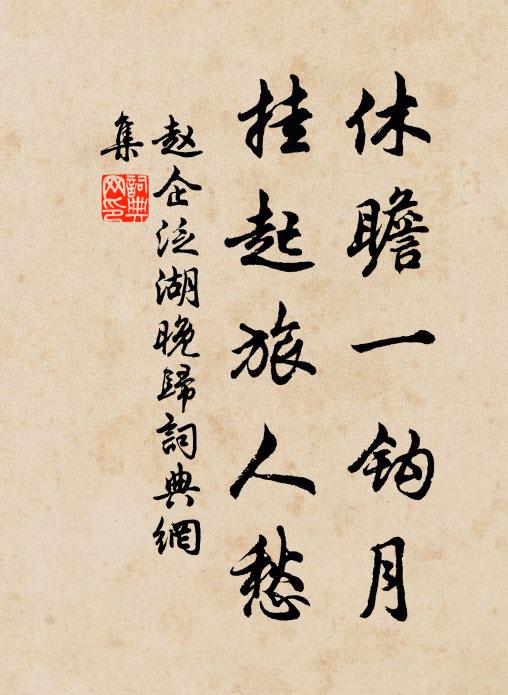 休瞻一钩月
挂起旅人愁
赵企泛湖晚歸詞典網
集
詞典网印